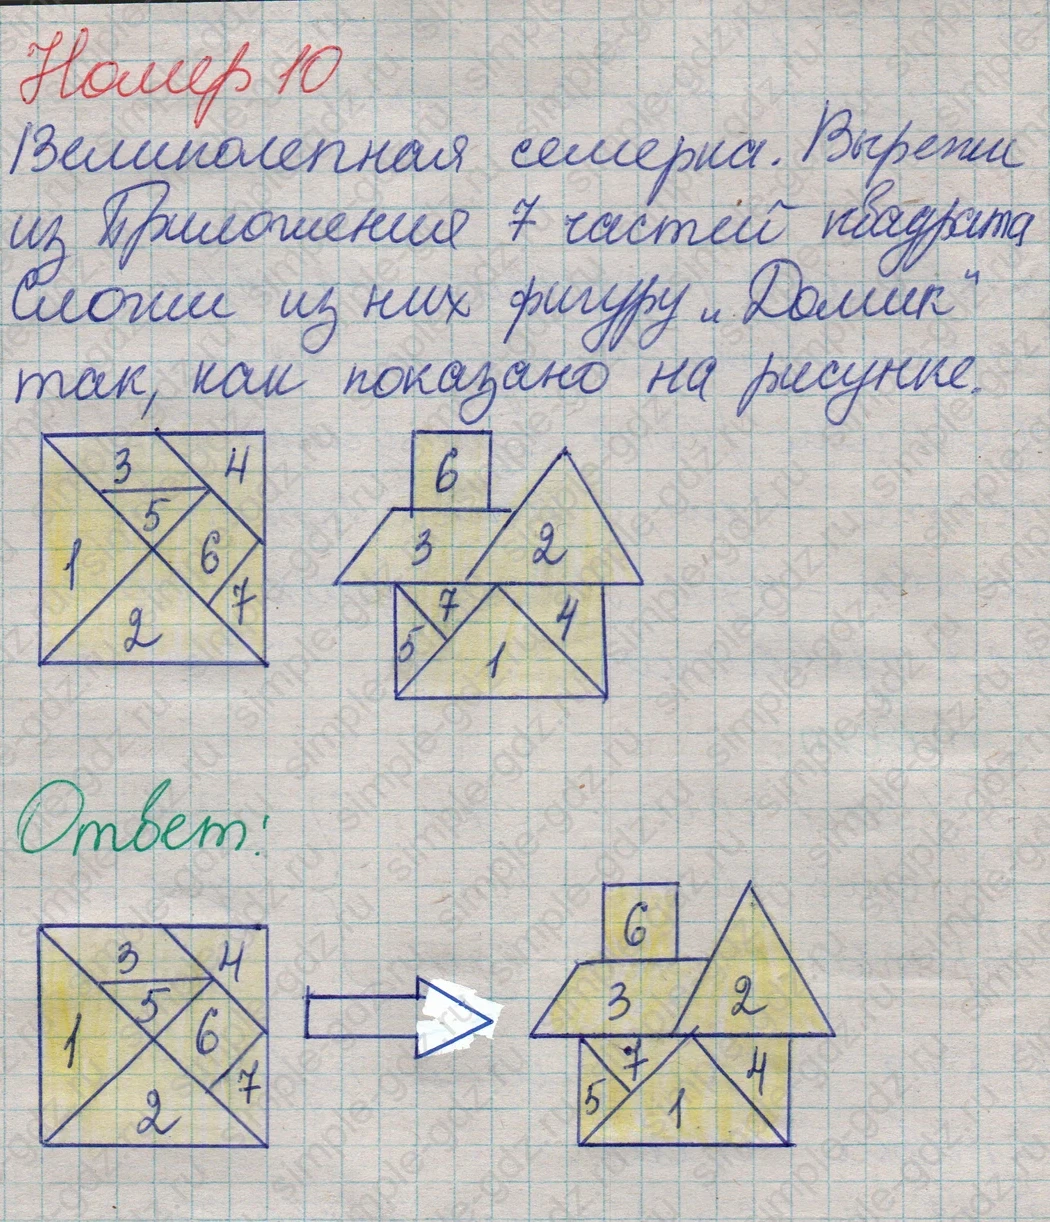 Номер 10
Великолепная семерка. Вырежи
из Приложения 7 частей квадрата
Сложи из них фигуру „Домик“
так, как показано на рисунке.
3 4
5
1 6
7
2
6
3 2
7 4
5 1
Ответ:
3 4
5
1 6
7
2
6
3 2
7 4
5 1
simple-gdz.ru